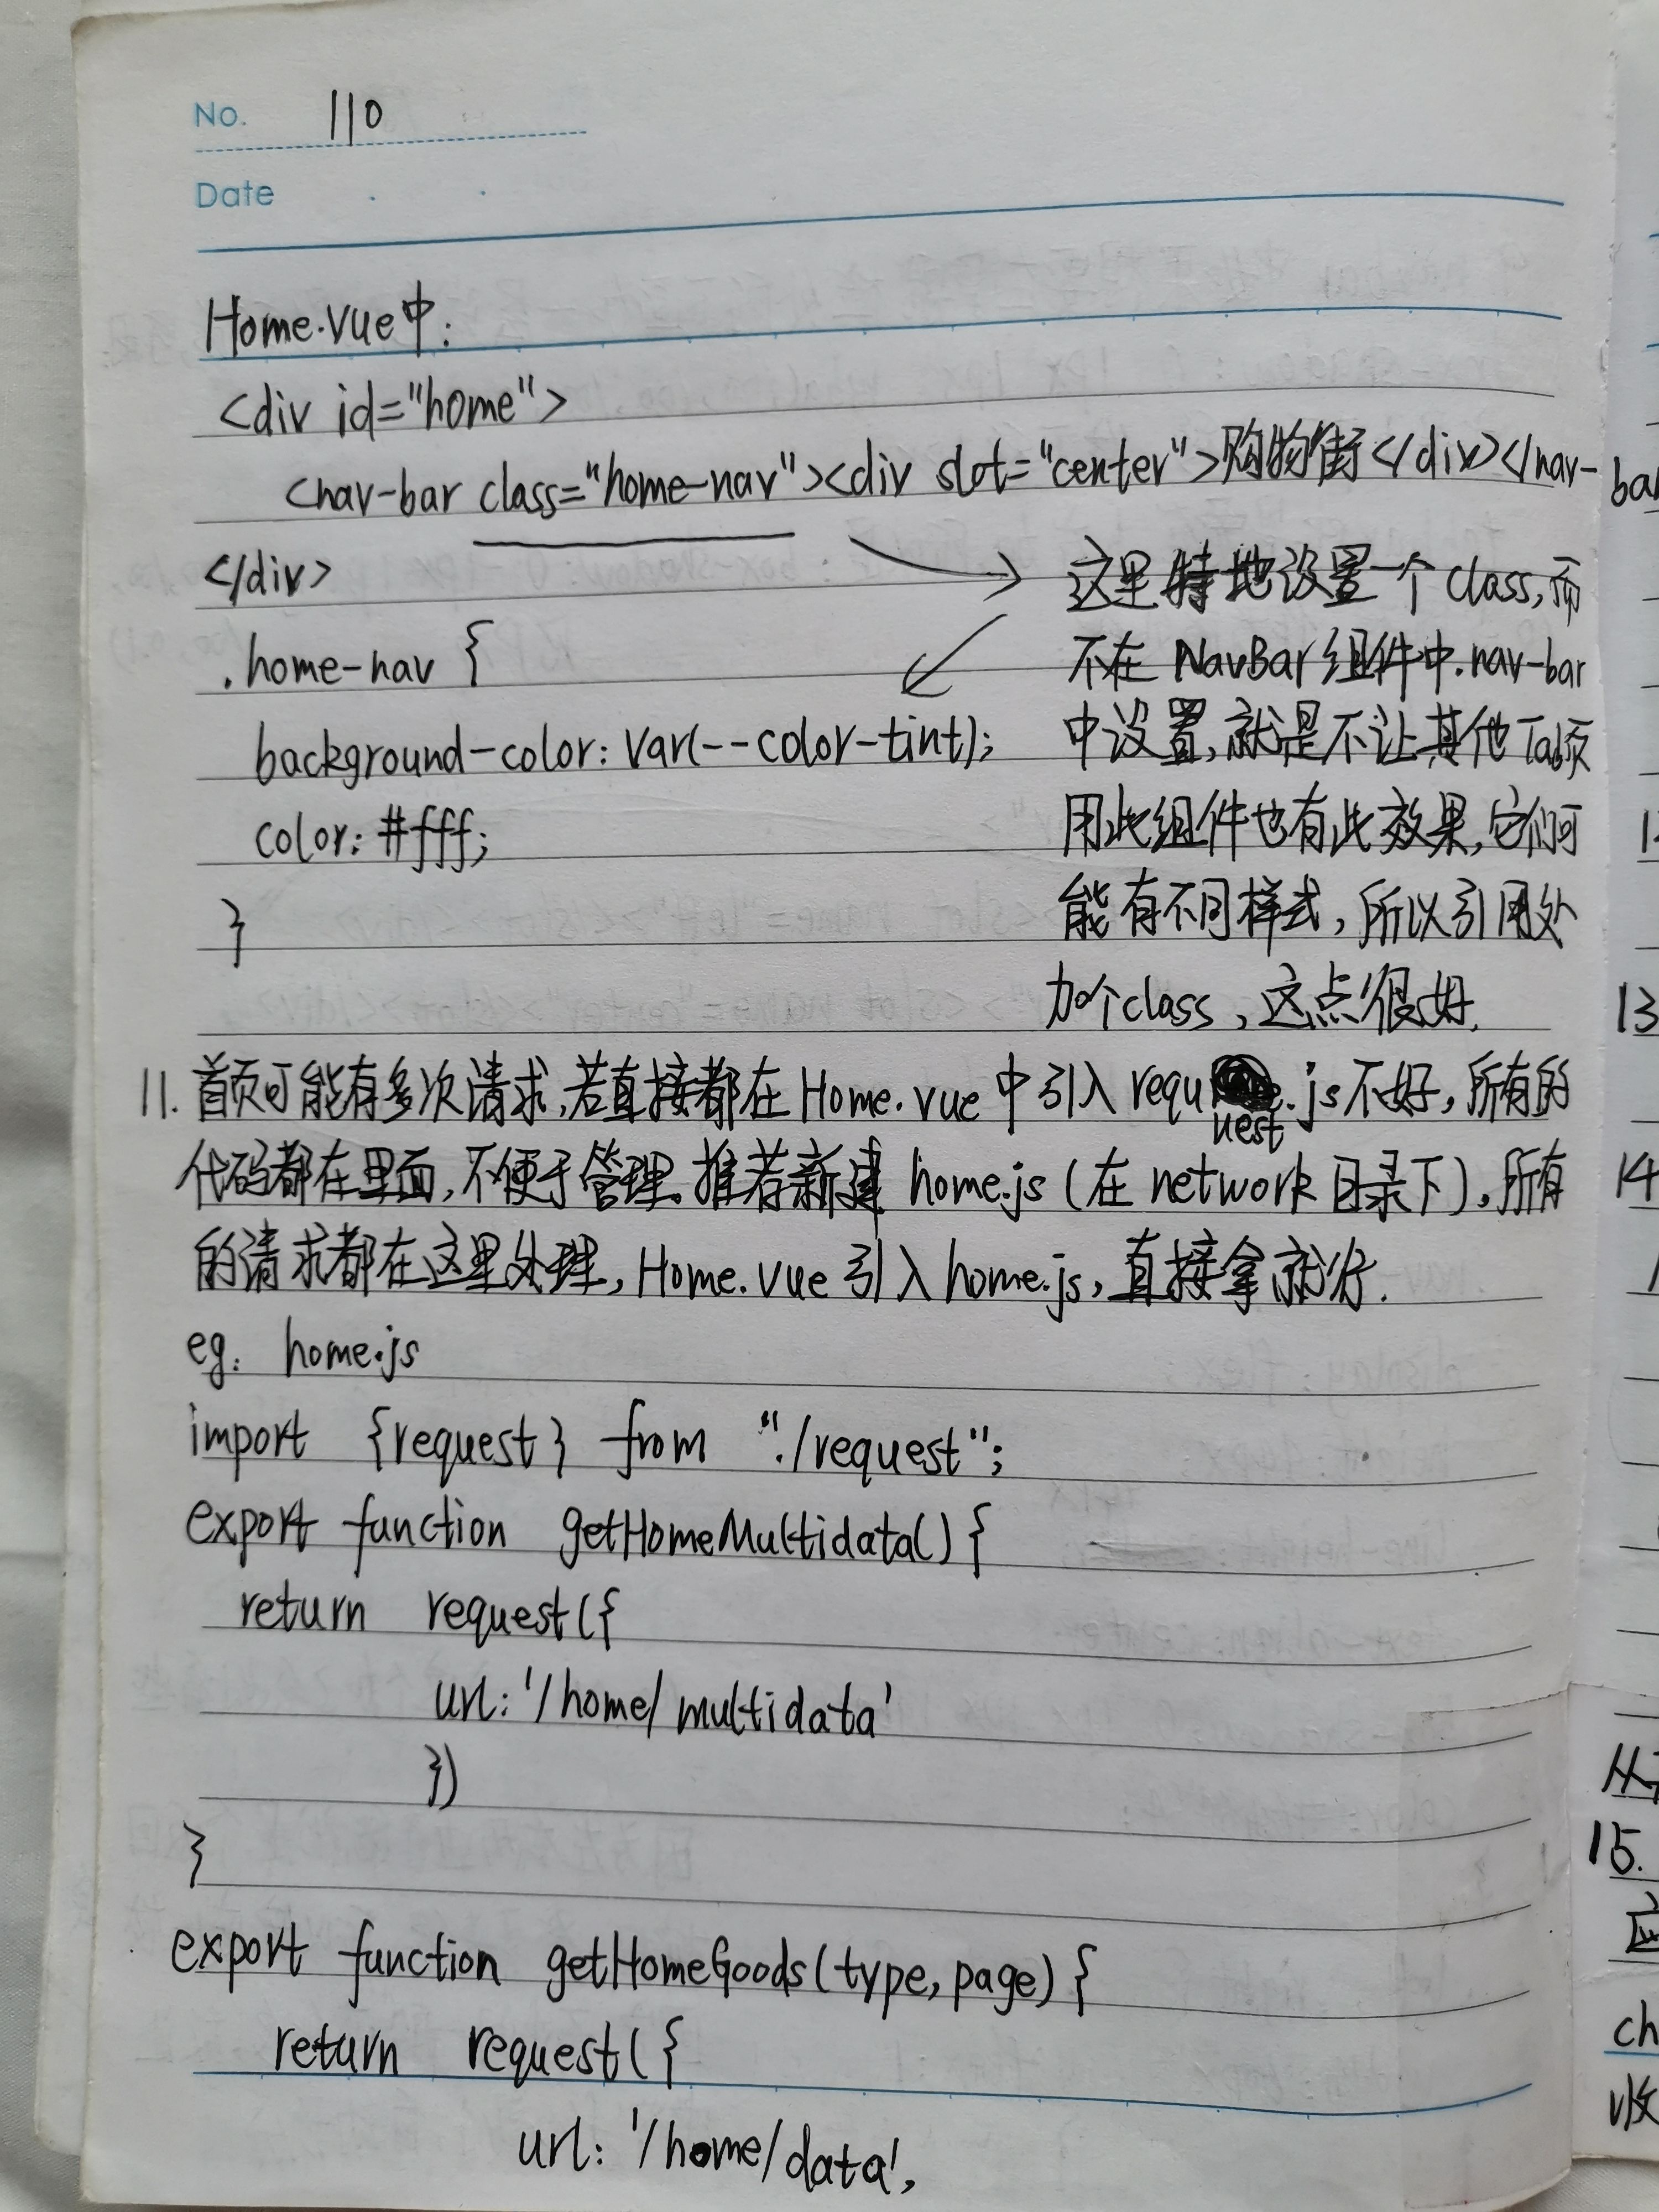 No. 110
Date
Home.vue中:
<div id="home">
<nav-bar class="home-nav"><div slot="center">购物街</div></nav-ba
</div>
这里特地设置一个class,而
.home-nav {
不在 NavBar 组件中.nav-bar
background-color: var(--color-tint);
中设置,就是不让其他Tab页
color: #fff;
用此组件也有此效果,它们可
}
能有不同样式,所以引用处
加个class,这点很好.
11. 首页可能有多次请求,若直接都在 Home.vue 中引入 request.js不好,所有的
代码都在里面,不便于管理。推荐新建 home.js (在 network 目录下),所有
的请求都在这里处理,Home.vue 引入 home.js,直接拿就好.
eg: home.js
import {request} from "./request";
export function getHomeMultidata() {
return request({
url: '/home/multidata'
})
}
export function getHomeGoods(type, page) {
return request({
url: '/home/data',
13
14
15.
应
ch
收